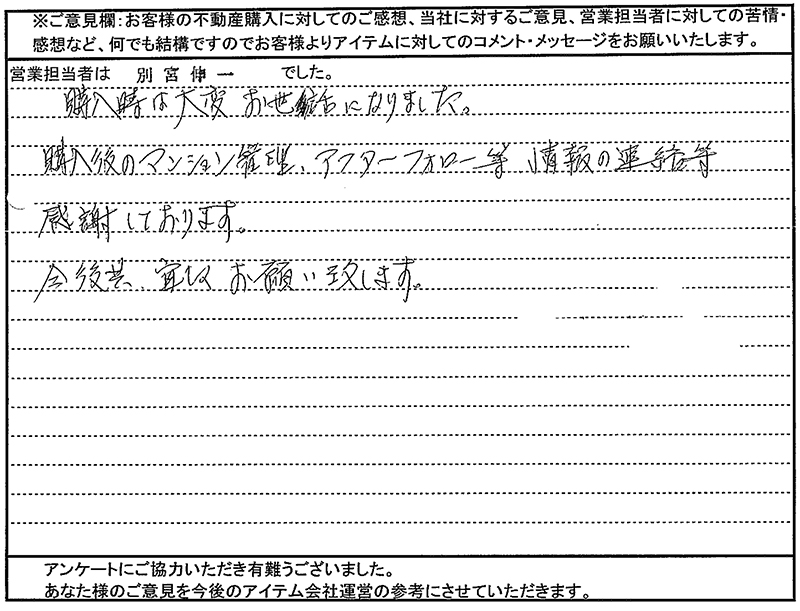 ※ご意見欄:お客様の不動産購入に対してのご感想、当社に対するご意見、営業担当者に対しての苦情・
感想など、何でも結構ですのでお客様よりアイテムに対してのコメント・メッセージをお願いいたします。
営業担当者は 別宮伸一 でした。
購入時は大変お世話になりました。
購入後のマンション管理、アフターフォロー等 情報の連絡等
感謝しております。
今後共、宜敷お願い致します。
アンケートにご協力いただき有難うございました。
あなた様のご意見を今後のアイテム会社運営の参考にさせていただきます。